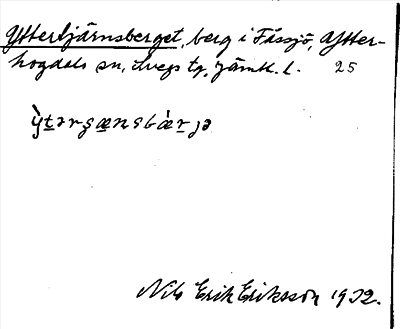 Yttertjärnsberget, berg i Fåssjö, Ytter-
hogdals sn, Svegs tg, Jämtl. l. 25
ỳtərʂænsbæ̀rjə
Nils Erik Eriksson 1932.